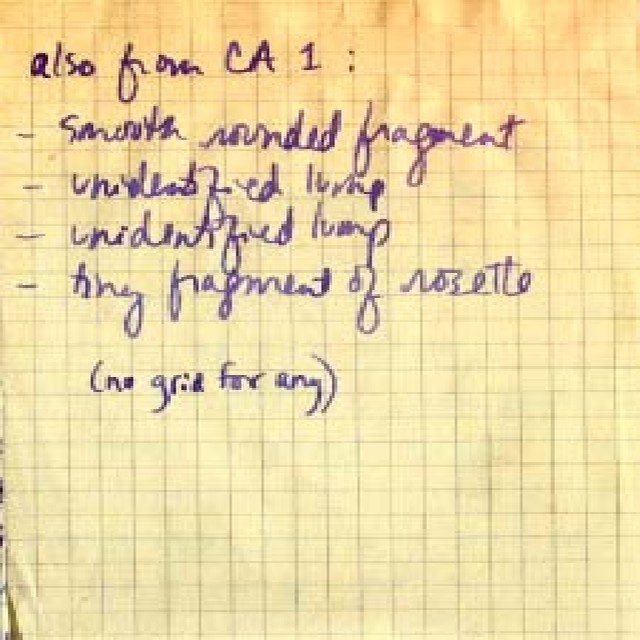 also from CA 1 :
- smooth rounded fragment
- unidentified lump
- unidentified lump
- tiny fragment of rosette
(no grid for any)